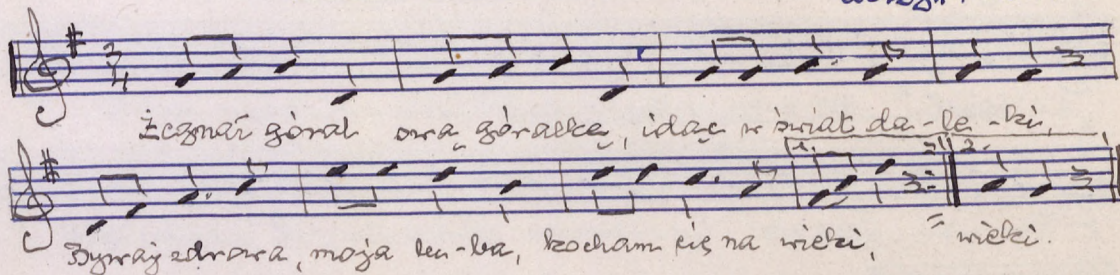 Żegnał góral swą góralkę, idąc w świat da-le-ki,
1. 2.
Bywaj zdrowa, moja lu-ba, kocham cię na wieki, wieki.